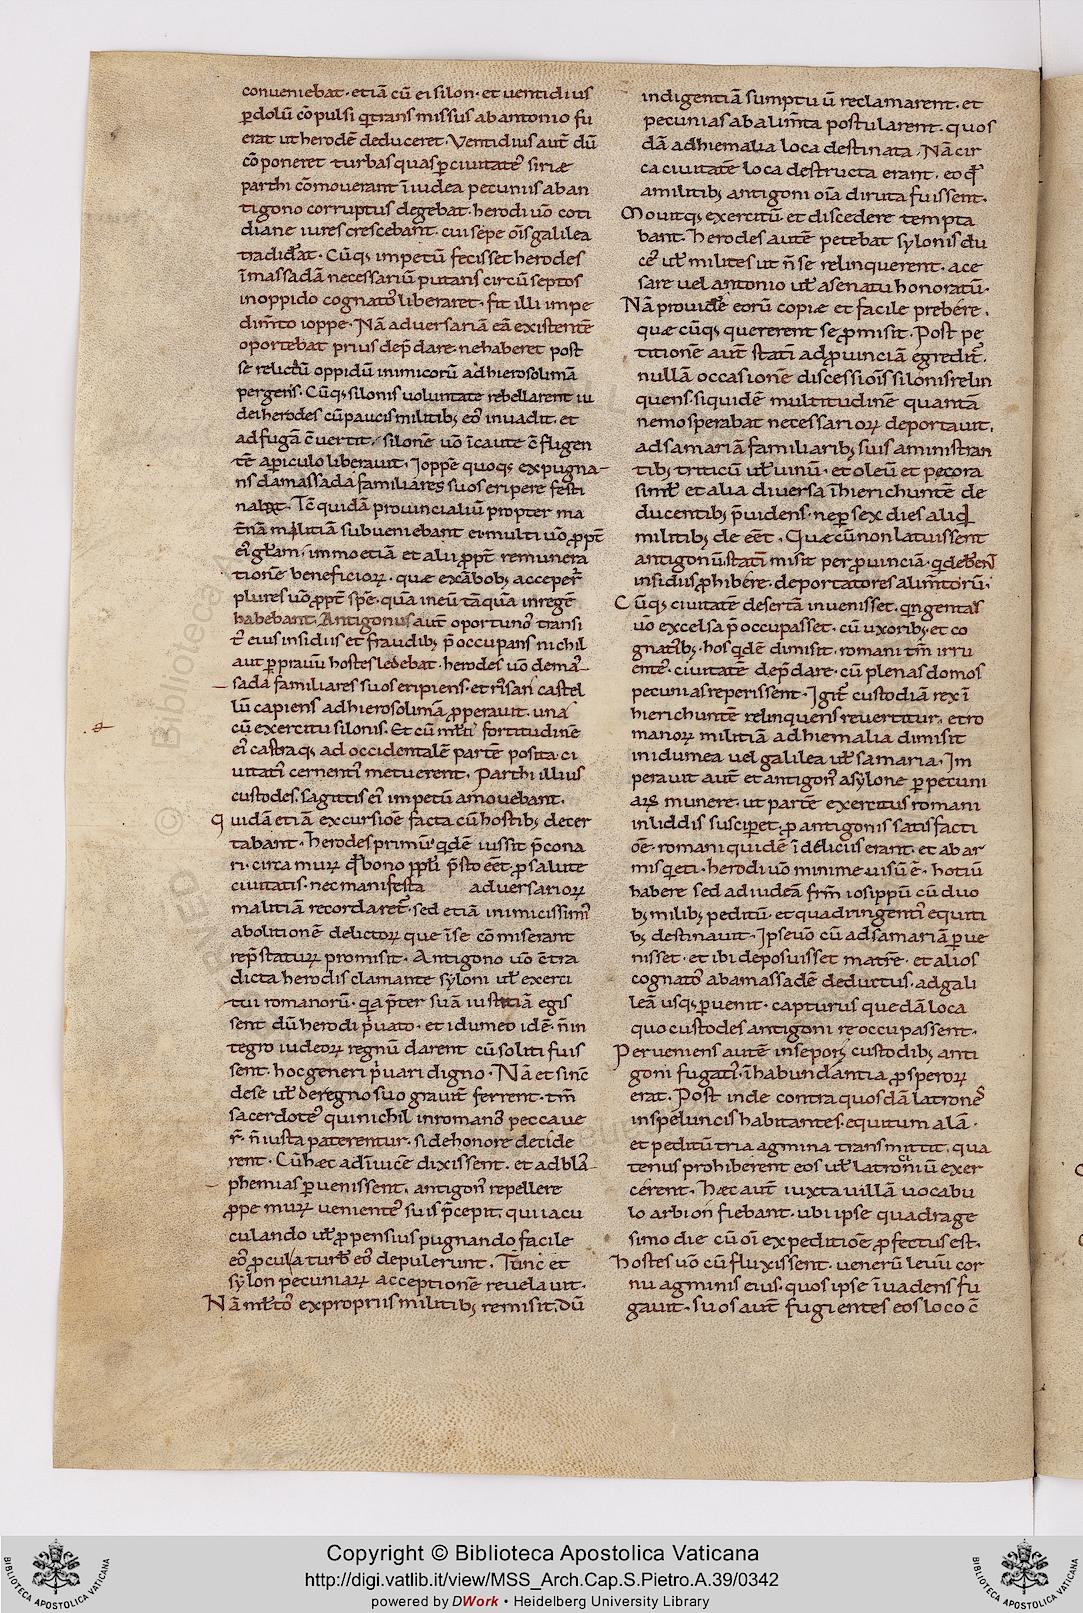 conueniebat· etiā cū ei silon· et uentidius
p̄ dolū cōpulsi q̄ transmissus ab antonio fu
erat ut herodē deduceret· Ventidius aut̄ dū
cōponeret turbas quas p̄ ciuitateˢ siriæ
parthi cōmouerant ī iudea pecuniis ab an
tigono corruptus degebat· herodi u̅o coti
diane uires crescebant· cui sepe ōis galilea
tradid̄at· Cūq; impetū fecisset herodes
ī massadā necessariū putans circū septos
in oppido cognatoˢ liberaret· fit illi impe
dim̄to ioppe· Nā aduersariā eā existentē
oportebat prius dep̄dare· ne haberet post
se relictū oppidū inimicorū ad hierosolimā
pergens· Cūq; silonis uoluntate rebellarent iu
dei herodes cū paucis militib; eoˢ inuadit· et
ad fugā c̄uertit· silonē u̅o īcaute c̄fligen
tē a p̄iculo liberauit· Ioppē quoq; expugna-
ns da massada familiares suos eripere festi
nabat· Tc̄ quidā prouincialiū propter ma
t̄nā militiā subueniebant ei multi u̅o p̄pt̄
eiˢ gr̄am· immo etiā et alii p̄pt̄ remunera
tionē beneficiorꝝ· quæ ex ābob; acceper̄
plures u̅o p̄pt̄ spē· quā in eū tāquā in regē
habebant· Antigonus aut̄ oportunoˢ transi
tˢ eius insidiis et fraudib; p̄occupans nichil
aut p̄ prauū hostes ledebat· herodes u̅o de ma-
sada familiares suos eripiens· et risan castel
lū capiens ad hierosolimā p̄perauit· una
cū exercitu silonis· Et cū ml̄ti fortitudinē
eiˢ castraq; ad occidentalē partē posita ci
uitatiˢ cernentˢ metuerent· Parthi illius
custodes sagittis eiˢ impetū amouebant·
quidā etiā excursiōe facta cū hostib; decer
tabant· Herodes primuˢ q̄dē iussit p̄cona
ri· circa murꝝ qđ bono pp̄li p̄sto eēt p̄ salute
ciuitatis· nec manifesta aduersariorꝝ
malitiā recordaret̄· sed etiā inimicissimˢ
abolitionē delictorꝝ que ī se cōmiserant
rep̄staturꝝ promisit· Antigono u̅o c̄tra
dicta herodis clamante syloni ul̄ exerci
tui romanorū· q̄a p̄ter suā iustitiā egis
sent dū herodi p̄uato· et idumeo idē· n̄ in
tegro iudeorꝝ regnū darent cū soliti fuis
sent· hoc generi p̄uari digno· Nā et si nc̄
de se ul̄ de regno suo grauit̄ ferrent· tm̄
sacerdoteˢ qui nichil in romanoˢ peccaue
r̄· n̄ iusta paterentur· si de honore decide
rent· Cū hæc adīuicē dixissent· et ad blā-
phemias p̄uenissent· antigonˢ repellere
p̄pe murꝝ uenienteˢ suis p̄cepit· qui iacu
culando ul̄ p̄pensius pugnando facile
eoˢ p̄cul a turrib; eoˢ depulerunt· Tunc et
sylon pecuniarꝝ acceptionē reuelauit·
Nā ml̄toˢ ex propriis militib; remisit· dū
indigentiā sumptuū reclamarent· et
pecunias ab alim̄ta postularent· quos
dā ad hiemalia loca destinata· Nā cir
ca ciuitatē loca destructa erant· eo qđ
a militib; antigoni oīa diruta fuissent·
Mouitq; exercitū et discedere tempta
bant· herodes autē petebat sylonis du
ceˢ ul̄ milites ut n̄ se relinquerent· a ce
sare uel antonio ul̄ a senatu honoratū·
Nā prouidē eorū copiæ et facile prebere·
quæcūq; quererent se p̄misit· Post pe
titionē aut̄ stati ad p̄uinciā egredit̄·
nullā occasionē discessiōis silonis relin
quens· siquidē multitudinē quantā
nemo sperabat necessariorꝝ deportauit·
ad samariā familiarib; suis aministran
tib; triticū ul̄ uinū· et oleū et pecora
simul̄ et alia diuersa ī hierichuntē de
ducentib; p̄uidens· ne p̄ sex dies aliqđ
militib; de eēt· Quæ cū non latuissent
antigonū statī misit per p̄uinciā· q̄ deberent
insidiis p̄hibere· deportatores alim̄torū·
Cūq; ciuitatē desertā inuenisset· qngentaˢ
u̅o excelsa p̄occupasset· cū uxorib; et co
gnatib;· hos q̄dē dimisit· romani tm̄ irru
enteˢ· ciuitatē dep̄dare· cū plenas domos
pecunias reperissent· Igit̄ custodiā rex ī
hierichuntē relinquens reuertitur· et ro
manorꝝ militiā ad hiemalia dimisit
in idumea uel galilea ul̄ samaria· Im
perauit aut̄ et antigonˢ a sylone p̄ pecuni
arꝝ munere· ut partē exercitus romani
in liddis susciperet· p̄ antigonis satisfacti
ōe· romani quidē ī deliciis erant· et ab ar
mis q̄eti· herodi u̅o minime uisū ē· hotiū
habere sed ad iudeā frm̄ iosippū cū duo
b; milib; peditū· et quadringentiˢ equiti
b; destinauit· Ipse u̅o cū ad samariā p̄ue
nisset· et ibi deposuisset matrē· et alios
cognatoˢ ab amassadē deductus· ad gali
leā usq; p̄uenit· capturus quedā loca
quo custodes antigoni reoccupassent·
Perueniens autē in seporˢ custodib; anti
goni fugatiˢ· ī habundantia p̄sperorꝝ
erat· Post inde contra quosdā latroneˢ
in speluncis habitantes· equitum alā·
et peditū tria agmina transmittit· qua
tenus prohiberent eos ul̄ latrociniū exer
cerent· Hæc aut̄ iuxta uillā uocabu
lo arbion fiebant· ubi ipse quadrage
simo die cū oī expeditiōe p̄fectus est·
Hostes u̅o cū fluxissent· uenerū leuū cor
nu agminis eius· quos ipse īuadens fu
gauit· suos aut̄ fugientes eos loco c̄
Copyright © Biblioteca Apostolica Vaticana
http://digi.vatlib.it/view/MSS_Arch.Cap.S.Pietro.A.39/0342
powered by DWork • Heidelberg University Library